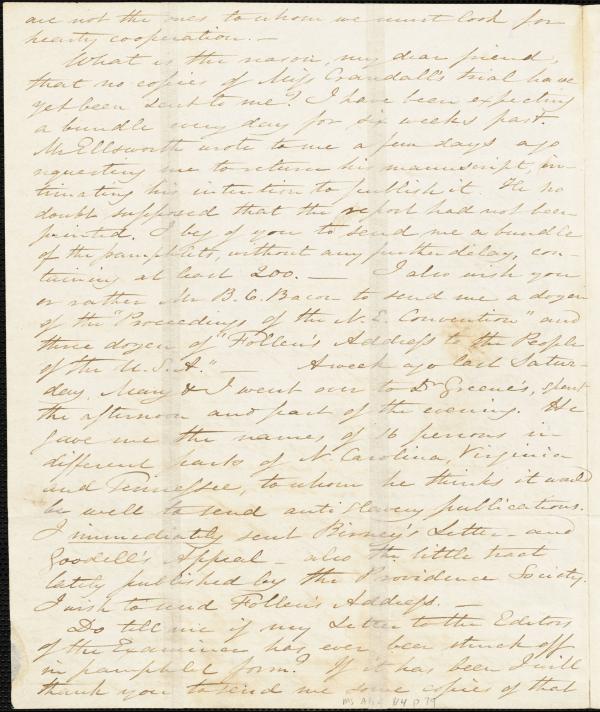 are not the ones to whom we must look for
hearty cooperation. —
What is the reason, my dear friend,
that no copies of Miss Crandall's trial have
yet been sent to me? I have been expecting
a bundle every day for six weeks past.
Mr Ellsworth wrote to me a few days ago
requesting me to return his manuscript, in-
timating his intention to publish it. He no
doubt supposed that the report had not been
printed. I beg of you to send me a bundle
of the pamphlets, without any further delay, con-
taining at least 200. — I also wish you
or rather Mr B. C. Bacon to send me a dozen
of the "Proceedings of the N. E. Convention" and
three dozen of "Follen's Address to the People
of the U. S. A." — A week ago last Satur-
day, Mary & I went over to Dr Greene's, spent
the afternoon and part of the evening. He
gave me the names of 16 persons in
different parts of N. Carolina, Virginia
and Tennessee, to whom he thinks it would
be well to send anti slavery publications.
I immediately sent Birney's Letter – and
Goodell's Appeal – also the little tract
lately published by the Providence Society.
I wish to send Follen's Address. —
Do tell me if my Letter to the Editors
of the Examiner has ever been struck off
in pamphlet form? If it has been I will
thank you to send me some copies of that